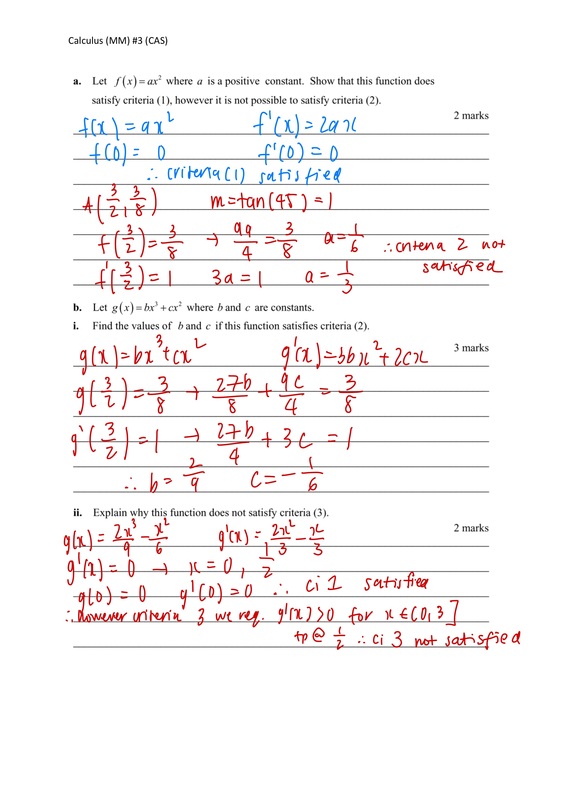 Calculus (MM) #3 (CAS)
a. Let f(x) = ax² where a is a positive constant. Show that this function does
satisfy criteria (1), however it is not possible to satisfy criteria (2).
2 marks
f(x) = ax² f'(x) = 2ax
f(0) = 0 f'(0) = 0
∴ criteria (1) satisfied
A(3/2, 3/8) m = tan(45) = 1
f(3/2) = 3/8 → 9a/4 = 3/8 a = 1/6 ∴ criteria 2 not
satisfied
f'(3/2) = 1 3a = 1 a = 1/3
b. Let g(x) = bx³ + cx² where b and c are constants.
i. Find the values of b and c if this function satisfies criteria (2).
3 marks
g(x) = bx³ + cx² g'(x) = 3bx² + 2cx
g(3/2) = 3/8 → 27b/8 + 9c/4 = 3/8
g'(3/2) = 1 → 27b/4 + 3c = 1
∴ b = 2/9 c = -1/6
ii. Explain why this function does not satisfy criteria (3).
2 marks
g(x) = 2x³/9 - x²/6 g'(x) = 2x²/3 - x/3
g'(x) = 0 → x = 0, 1/2
g(0) = 0 g'(0) = 0 ∴ ci 1 satisfied
∴ however criteria 3 we req. g'(x) > 0 for x ∈ (0, 3]
tp @ 1/2 ∴ ci 3 not satisfied